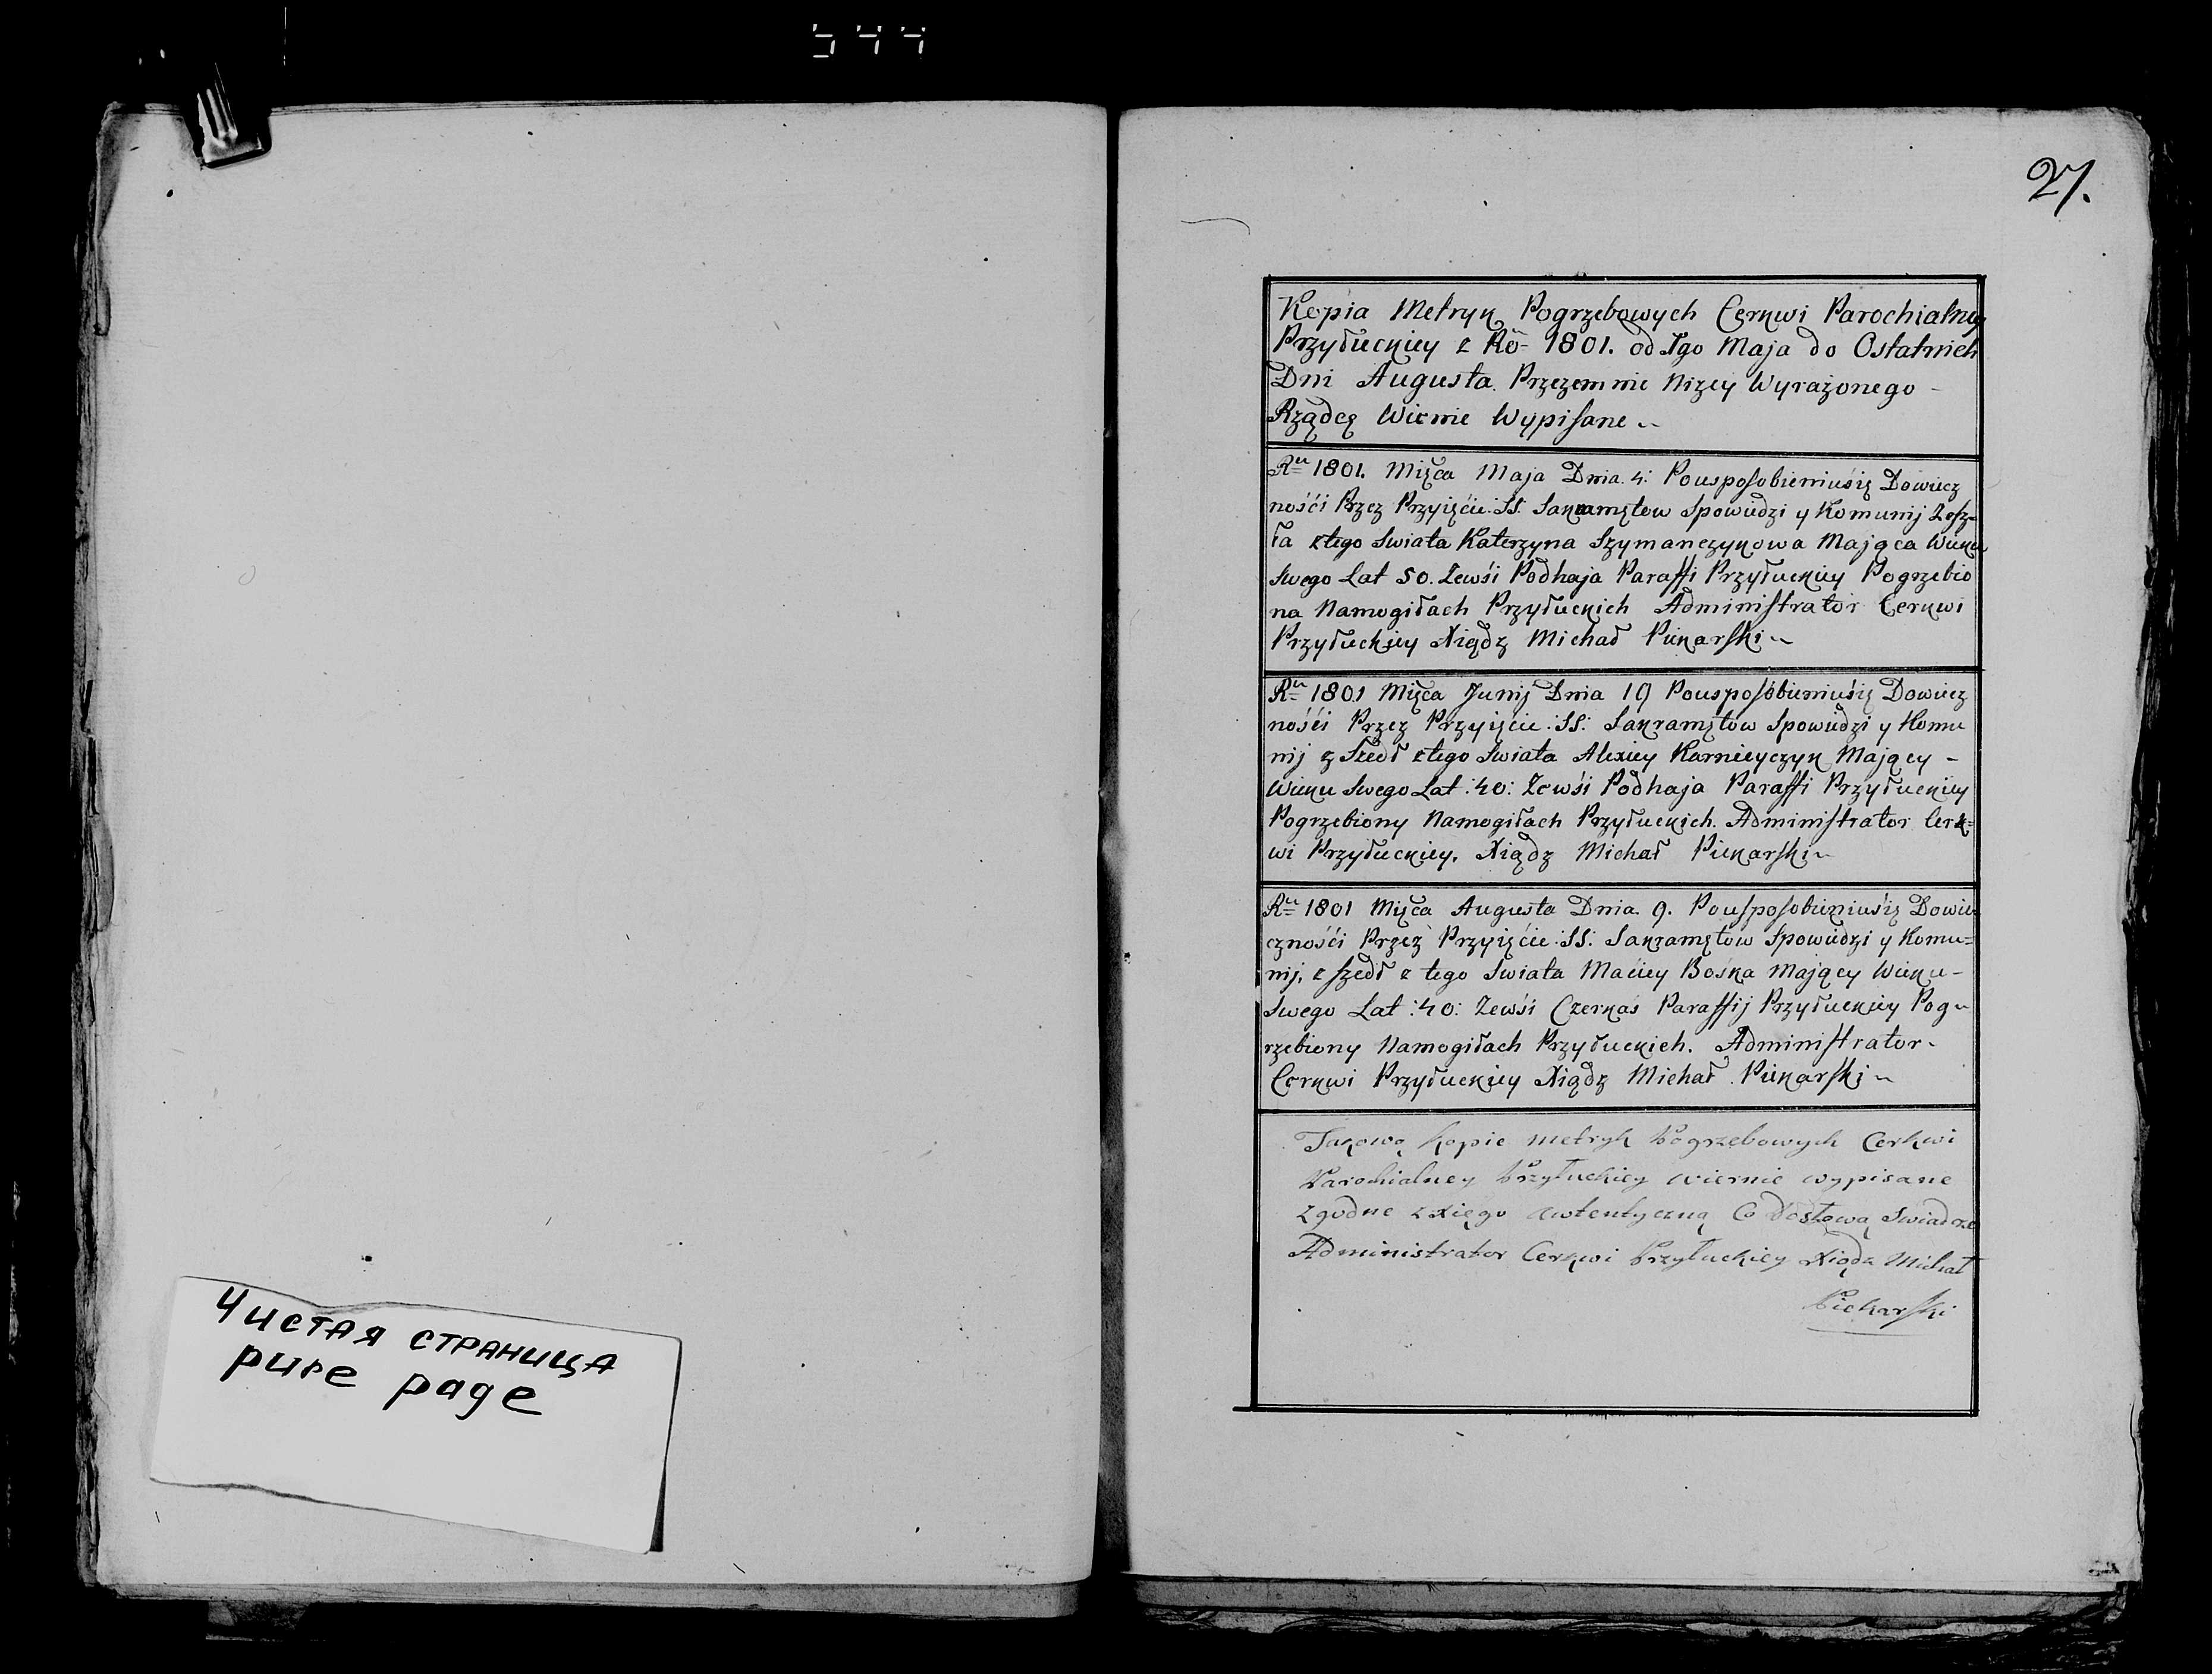 544
27.
Kopia Metryk Pogrzebowych Cerkwi Parochialney
Przyłuckiey z Ro 1801. od 1go Maja do Ostatnich
Dni Augusta Przezemnie Niżey Wyrażonego
Rządcę Wiernie Wypisane
Ru 1801. Mięca Maja Dnia 4: Pousposobieniusię Dowiecz
nośći Przez Przyięćie :SS: Sakramętow Spowiedzi y Komunij Zesz-
ła ztego Swiata Katerzyna Szymanczykowa Mająca Wieku
Swego Lat 50. Zewśi Podhaja Paraffi Przyłuckiey Pogrzebio
na Namogiłach Przyłuckich Administrator Cerkwi
Przyłuckiey Xiądz Michał Piekarski
Ru 1801 Mięca Junij Dnia 19 Pousposobieniusię Dowiecz
nośći Przez Przyięćie :SS: Sakramętow Spowiedzi y Komu
nij z Szedł ztego Swiata Alexiey Karnieyczyk Mający -
Wieku Swego Lat :40: Zewśi Podhaja Paraffi Przyłuckiey
Pogrzebiony Namogiłach Przyłuckich. Administrator Cerk=
wi Przyłuckiey. Xiądz Michał Piekarski
Ru 1801 Mięca Augusta Dnia 9. Pousposobieniusię Dowie-
cznośći Przez Przyięćie :SS: Sakramętow Spowiedzi y Komu=
nij, z szedł z tego Swiata Maćiey Bośka Mający Wieku -
Swego Lat :40: Zewśi Czerkas Paraffij Przyłuckiey Pog-
rzebiony Namogiłach Przyłuckich. Administrator -
Cerkwi Przyłuckiey Xiądz Michał Piekarski
Takową Kopie Metryk Pogrzebowych Cerkwi
Parochialney Przyłuckiey wiernie wypisane
zgodne z Xięgo Awtentyczną Co Dosłową Swiadcze
Administrator Cerkwi Przyłuckiey Xiądz Michał
Piekarski
Чистая страница
pure page